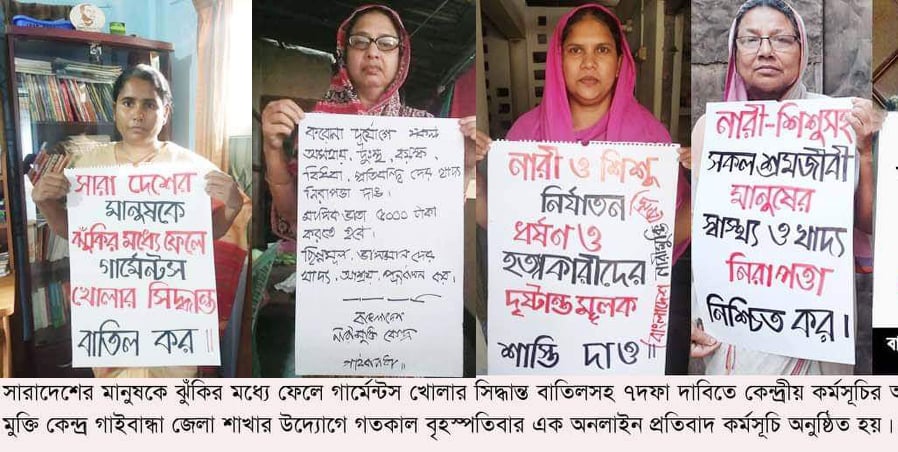 সারা দেশের
মানুষকে
ঝুঁকির মধ্যে ফেলে
গার্মেন্টস
খোলার সিদ্ধান্ত
বাতিল কর॥
করোনা দুর্যোগে সকল
অসহায়, দুঃস্থ,
বিধবা, প্রতিবন্ধি দের খাদ্য
নিরাপত্তা দাও।
মাসিক ভাতা ৫০০০ টাকা
করতে হবে।
ছিন্নমূল, ভাসমান দের
খাদ্য, আশ্রয়, পুনর্বাসন কর।
বাংলাদেশ
নারীমুক্তি কেন্দ্র
গাইবান্ধা।
নারী ও শিশু
নির্যাতন
ধর্ষণ ও
হত্যাকারীদের
দৃষ্টান্ত মূলক
শাস্তি দাও॥
বাংলাদেশ নারীমুক্তি কেন্দ্র
নারী-শিশুসহ
সকল শ্রমজীবী
মানুষের
স্বাস্থ্য ও খাদ্য
নিরাপত্তা
নিশ্চিত কর।
সারাদেশের মানুষকে ঝুঁকির মধ্যে ফেলে গার্মেন্টস খোলার সিদ্ধান্ত বাতিলসহ ৭দফা দাবিতে কেন্দ্রীয় কর্মসূচির
মুক্তি কেন্দ্র গাইবান্ধা জেলা শাখার উদ্যোগে গতকাল বৃহস্পতিবার এক অনলাইন প্রতিবাদ কর্মসূচি অনুষ্ঠিত হয়।